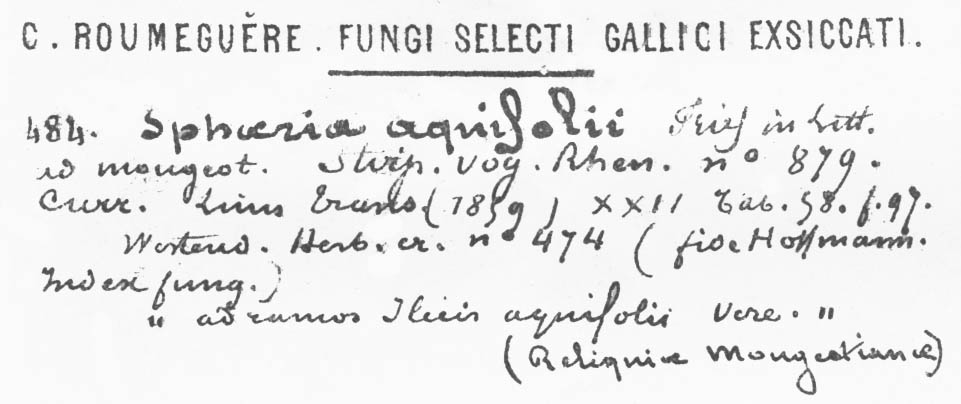 C. ROUMEGUĔRE. FUNGI SELECTI GALLICI EXSICCATI.
484. Sphæria aquifolii Fries in Litt.
ad mougeot. Stirp. Vog. Rhen. nº 879.
Curr. Linn Trans (1859) XXII Tab. 58. f. 97.
Westend. Herb. cr. nº 474 (fide Hoffmann.
Index fung.)
" ad ramos Ilicis aquifolii Vere. "
(Reliquiæ Mougeotianæ)